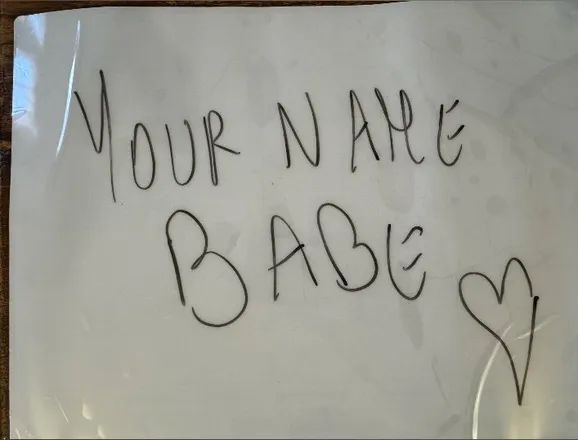 YOUR NAME
BABE